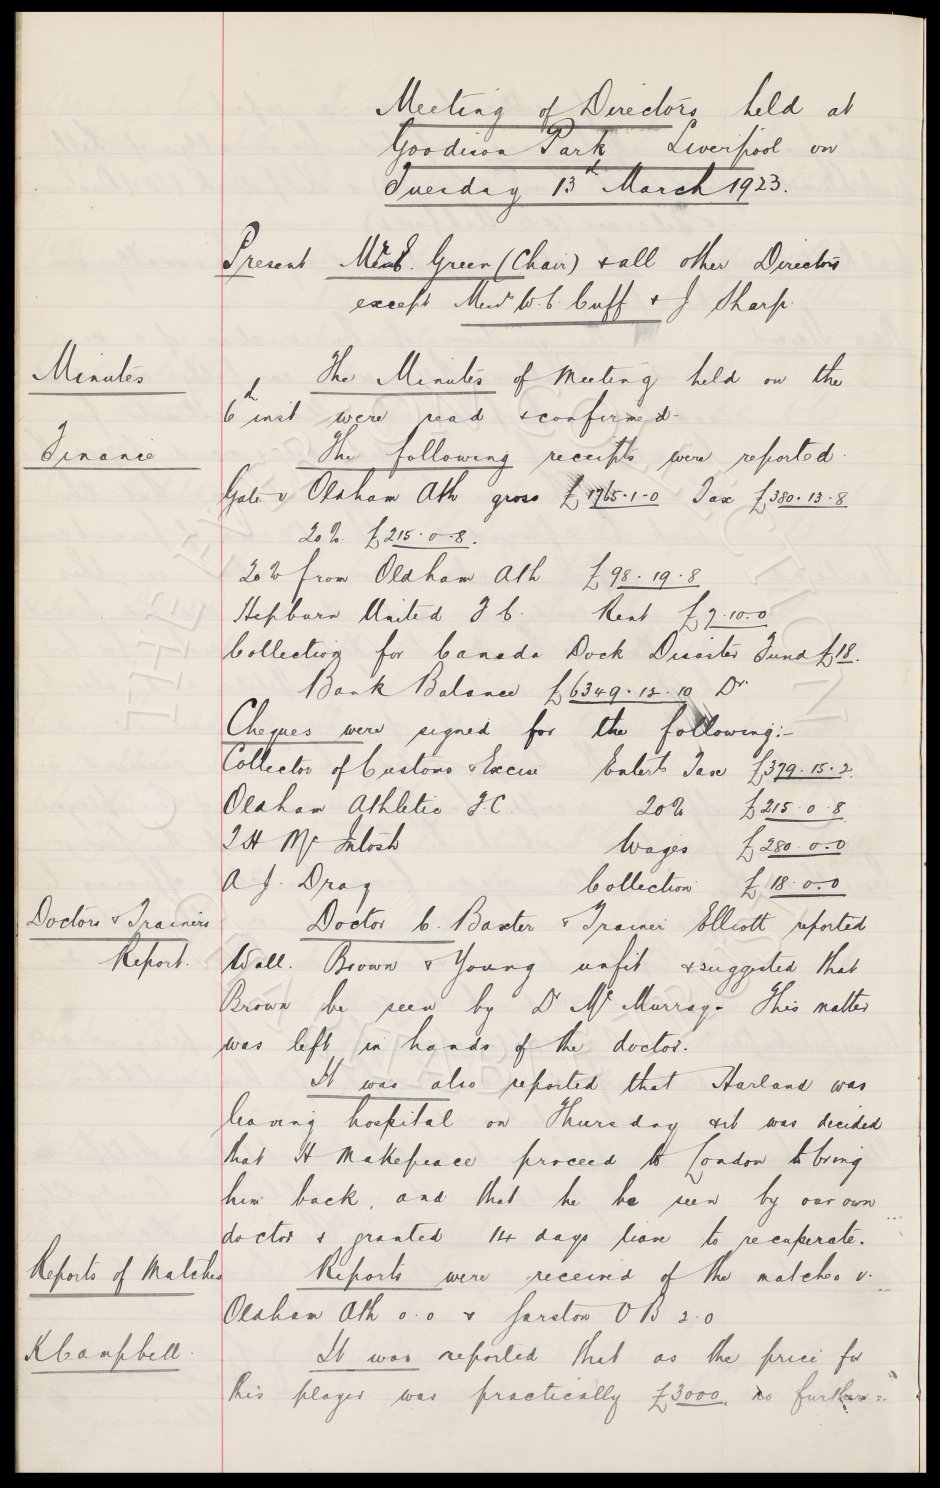 Meeting of Directors held at
Goodison Park Liverpool on
Tuesday 13th March 1923.
Present Mr E. Green (Chair) & all other Directors
except Messrs W. C. Cuff & J Sharp.
Minutes The Minutes of Meeting held on the
6th inst were read & confirmed.
Finance The following receipts were reported.
Gate v Oldham Ath gross £1765.1.0 Tax £380.13.8
20% £215.0.8.
20% from Oldham Ath £98.19.8
Hepburn United F C. Rent £7.10.0
Collection for Canada Dock Disaster Fund £18.
Bank Balance £6349.12.10 Dr
Cheques were signed for the following:-
Collector of Customs & Excise Entert Tax £379.15.2
Oldham Athletic F.C. 20% £215.0.8
T H Mc Intosh Wages £280.0.0
A J. Drag Collection £18.0.0
Doctors & Trainers Doctor C. Baxter & Trainer Elliott reported
Report. Wall. Brown & Young unfit & suggested that
Brown be seen by Dr Mc Murray. This matter
was left in hands of the doctor.
It was also reported that Harland was
leaving hospital on Thursday & it was decided
that H Makepeace proceed to London to bring
him back, and that he be seen by our own
doctor & granted 14 days leave to recuperate.
Reports of Matches Reports were received of the matches v.
Oldham Ath 0.0 & Garston O B 2.0
K Campbell. It was reported that as the price for
this player was practically £3000, no further
THE EVERTON COLLECTION